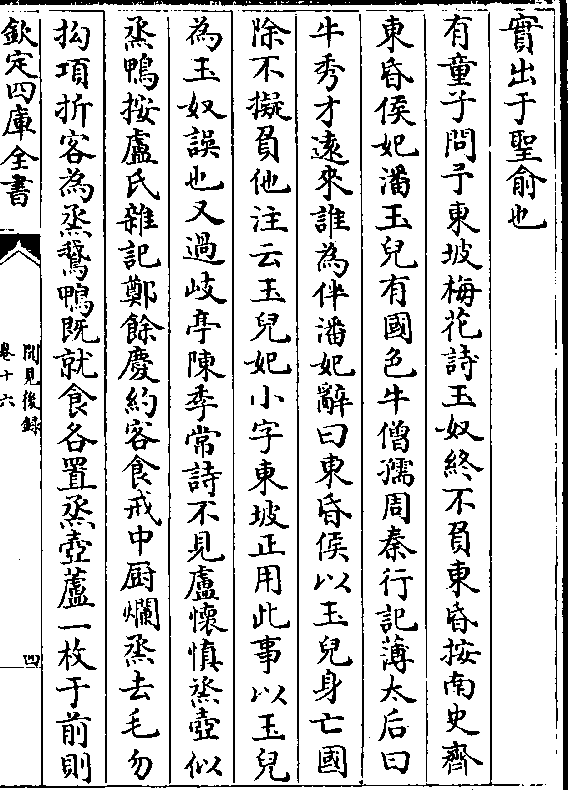 實出于聖俞也
有童子問予東坡梅花詩玉奴終不負東昏按南史齊
東昏侯妃潘玉兒有國色牛僧孺周秦行記薄太后曰
牛秀才遠來誰為伴潘妃辭曰東昏侯以玉兒身亡國
除不擬負他注云玉兒妃小字東坡正用此事以玉兒
為玉奴誤也又過岐亭陳季常詩不見盧懷慎烝壺似
烝鴨按盧氏雜記鄭餘慶約客食戒中厨爛烝去毛勿
拗項折客為烝鵞鴨既就食各置烝壺蘆一枚于前則
欽定四庫全書
聞見後録
卷十六
四